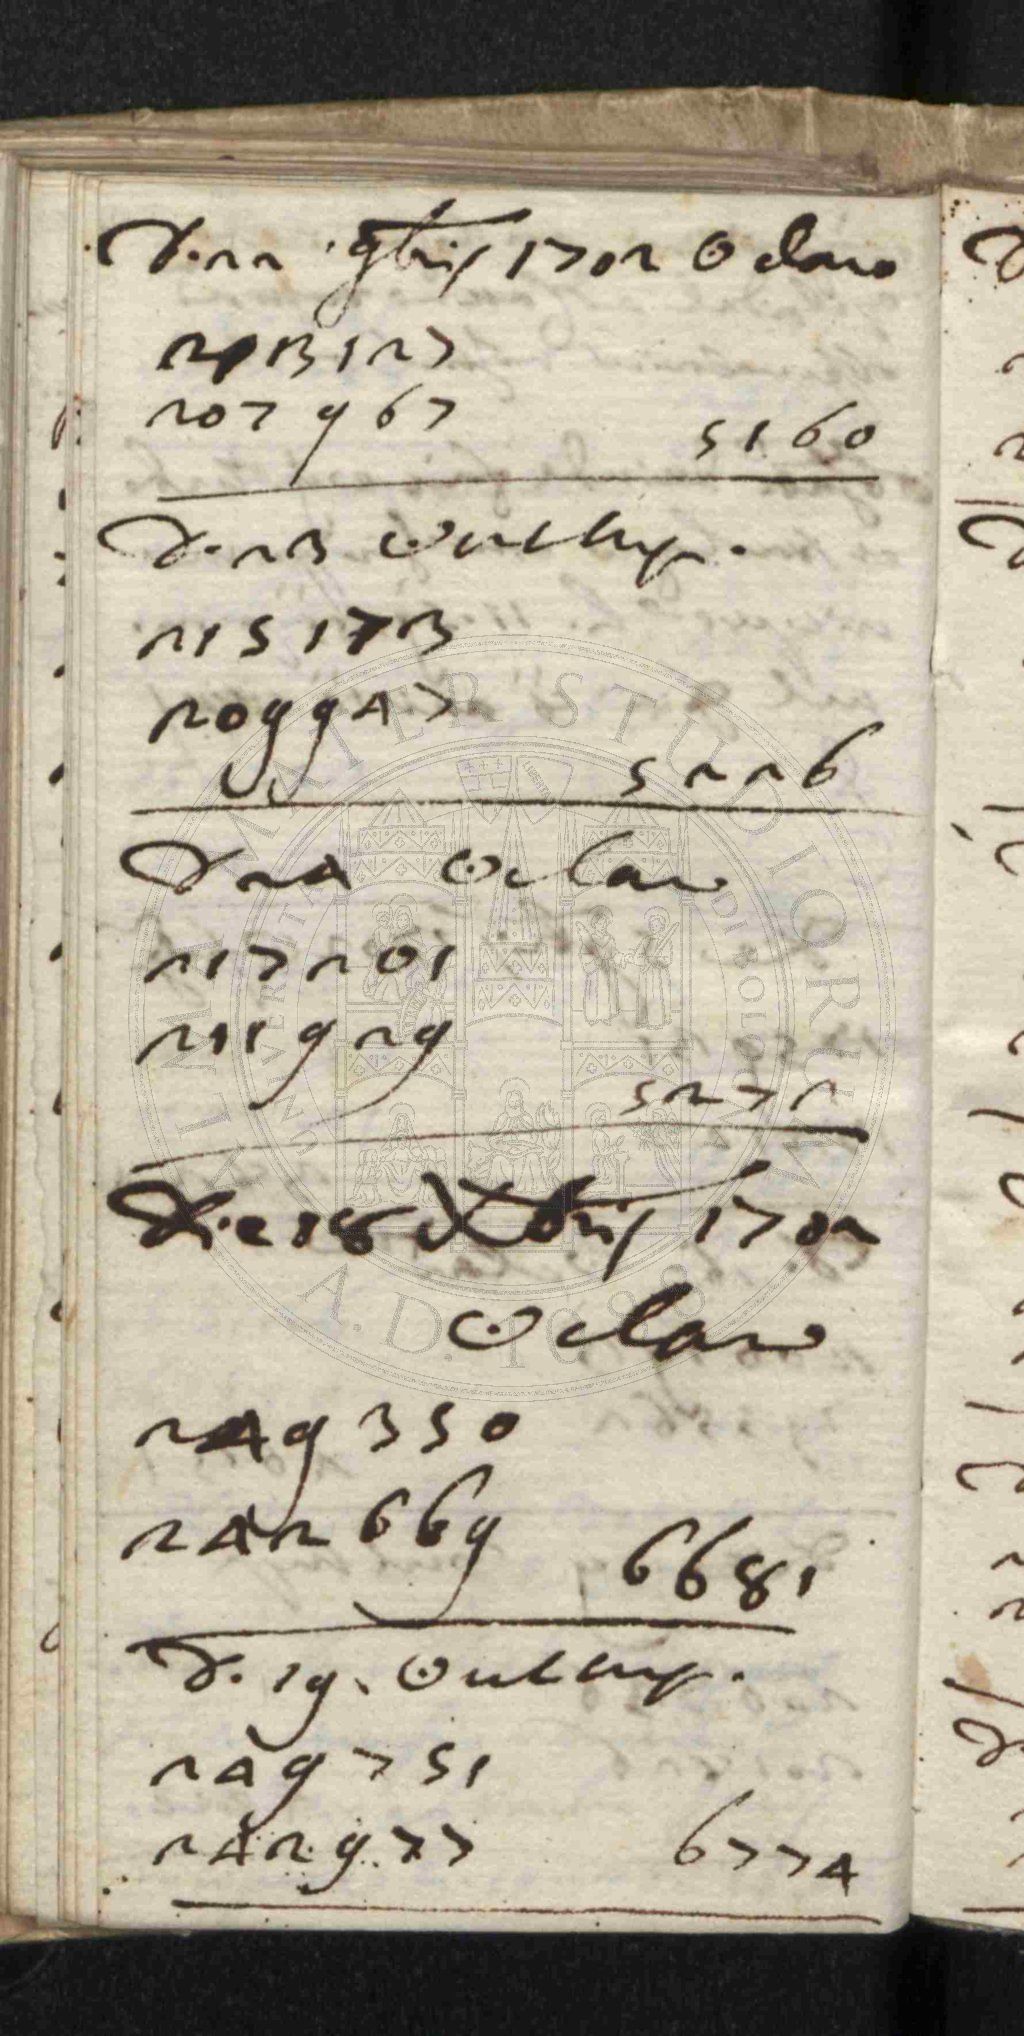 D. 22 9bris 1702 ☉ claro
213127
207967 5160
D. 23 ☉
215173
209947
5226
D 24 ☉ claro
217201
211929
5272
Die 18 Xbris 1702
☉ claro
249350
242669 6681
D. 19. ☉
249751
242977 6774
ALMA MATER STUDIORUM
UNIVERSITÀ DI BOLOGNA
A.D. 1088